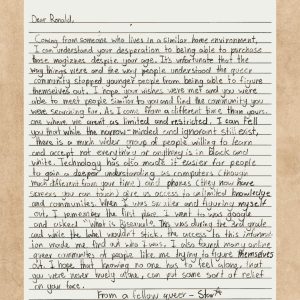 Dear Ronald,
Coming from someone who lives in a similar home environment,
I can understand your desperation to being able to purchase
those magazines despite your age. It's unfortunate that the
way things were and the way people understood the queer
community stopped younger people from being able to figure
themselves out. I hope your wishes were met and you were
able to meet people similar to you and find the community you
were searching for. As I come from a different time than yours,
one where we aren't as limited and restricted. I can tell
you that while the narrow-minded and ignorant still exist,
there is a much wider group of people willing to learn
and accept not everything or anything is in black and
white. Technology has also made it easier for people
to gain a deeper understanding as computers (though
much different from your time) and phones (they now have
screens you can touch) give us access to unlimited knowledge
and communities. When I was smaller and figuring myself
out, I remember the first place I went to was google
and asked "What is Bisexual". This was during the 3rd grade
and while the label wouldn't stick, the access to this information
made me find out who I was. I also found many online
queer communities of people like me trying to figure themselves
out. I hope that knowing no one has to feel alone, that
you were never truely alone, can put some sort of relief
on your face.
From a fellow queer - Star